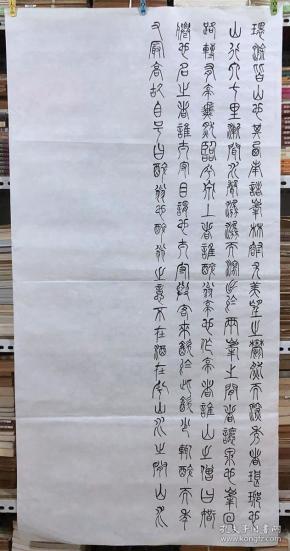 環滁皆山也其西南諸峯林壑尤美望之蔚然而深秀者琅琊也
山行六七里漸聞水聲潺潺而瀉出於兩峯之間者讓泉也峯回
路轉有亭翼然臨於泉上者醉翁亭也作亭者誰山之僧曰智
僊也名之者誰太守自謂也太守與客來飲於此飲少輒醉而年
又最高故自号曰醉翁也醉翁之意不在酒在乎山水之間山水